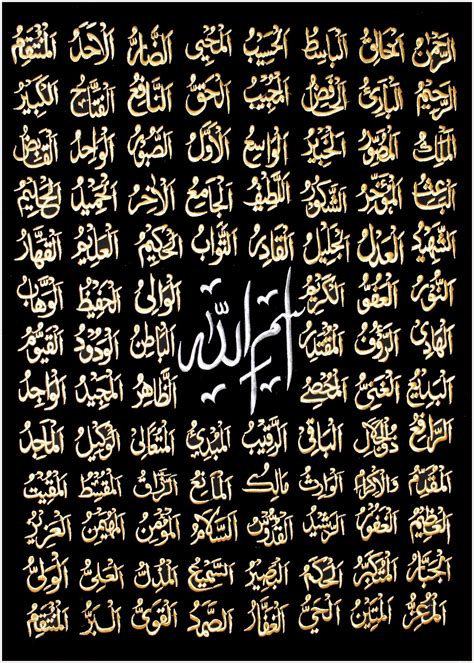 الرَّحْمٰنُ الْخَالِقُ الْبَاسِطُ الْحَسِيبُ الْمُحْيِي الضَّارُّ الْأَحَدُ الْمُنْتَقِمُ
الرَّحِيمُ الْبَارِئُ الْخَافِضُ الْمُجِيبُ الْحَقُّ النَّافِعُ الْفَتَّاحُ الْكَبِيرُ
الْمَلِكُ الْمُصَوِّرُ الْخَبِيرُ الْوَاسِعُ الْأَوَّلُ الصَّبُورُ الْوَاحِدُ الْقَابِضُ
الْبَاعِثُ الْمُؤَخِّرُ الشَّكُورُ اللَّطِيفُ الْجَامِعُ الْآخِرُ الْحَمِيدُ الْحَلِيمُ
الشَّهِيدُ الْعَدْلُ الْجَلِيلُ الْقَادِرُ التَّوَّابُ الْحَكِيمُ الْعَلِيمُ الْقَهَّارُ
النُّورُ الْعَفُوُّ الْكَرِيمُ الْوَالِي الْحَفِيظُ الْوَهَّابُ
اسم الله
الْهَادِي الرَّؤُفُ الْمُقْتَدِرُ الْبَاطِنُ الْوَدُودُ الْقَيُّومُ
الْبَدِيعُ الْغَنِيُّ الْمُحْصِي الظَّاهِرُ الْمَجِيدُ الْوَاجِدُ
الرَّافِعُ ذُوالْجَلَالِ الْبَاقِي الرَّقِيبُ الْمُبْدِئُ الْمُتَعَالِي الْوَكِيلُ الْمَاجِدُ
الْمُقَدِّمُ وَالْاِكْرَامِ الْوَارِثُ مَالِكُ الْمَانِعُ الرَّزَّاقُ الْمُقْسِطُ الْمُقِيتُ
الْعَظِيمُ الْغَفُورُ الرَّشِيدُ الْقُدُّوسُ السَّلَامُ الْمُؤْمِنُ الْمُهَيْمِنُ الْعَزِيزُ
الْجَبَّارُ الْمُتَكَبِّرُ الْحَكَمُ الْبَصِيرُ السَّمِيعُ الْمُذِلُّ الْعَلِيُّ الْوَلِيُّ
الْمُعِزُّ الْمَتِينُ الْحَيُّ الْغَفَّارُ الصَّمَدُ الْقَوِيُّ الْبَرُّ الْمُنْتَقِمُ